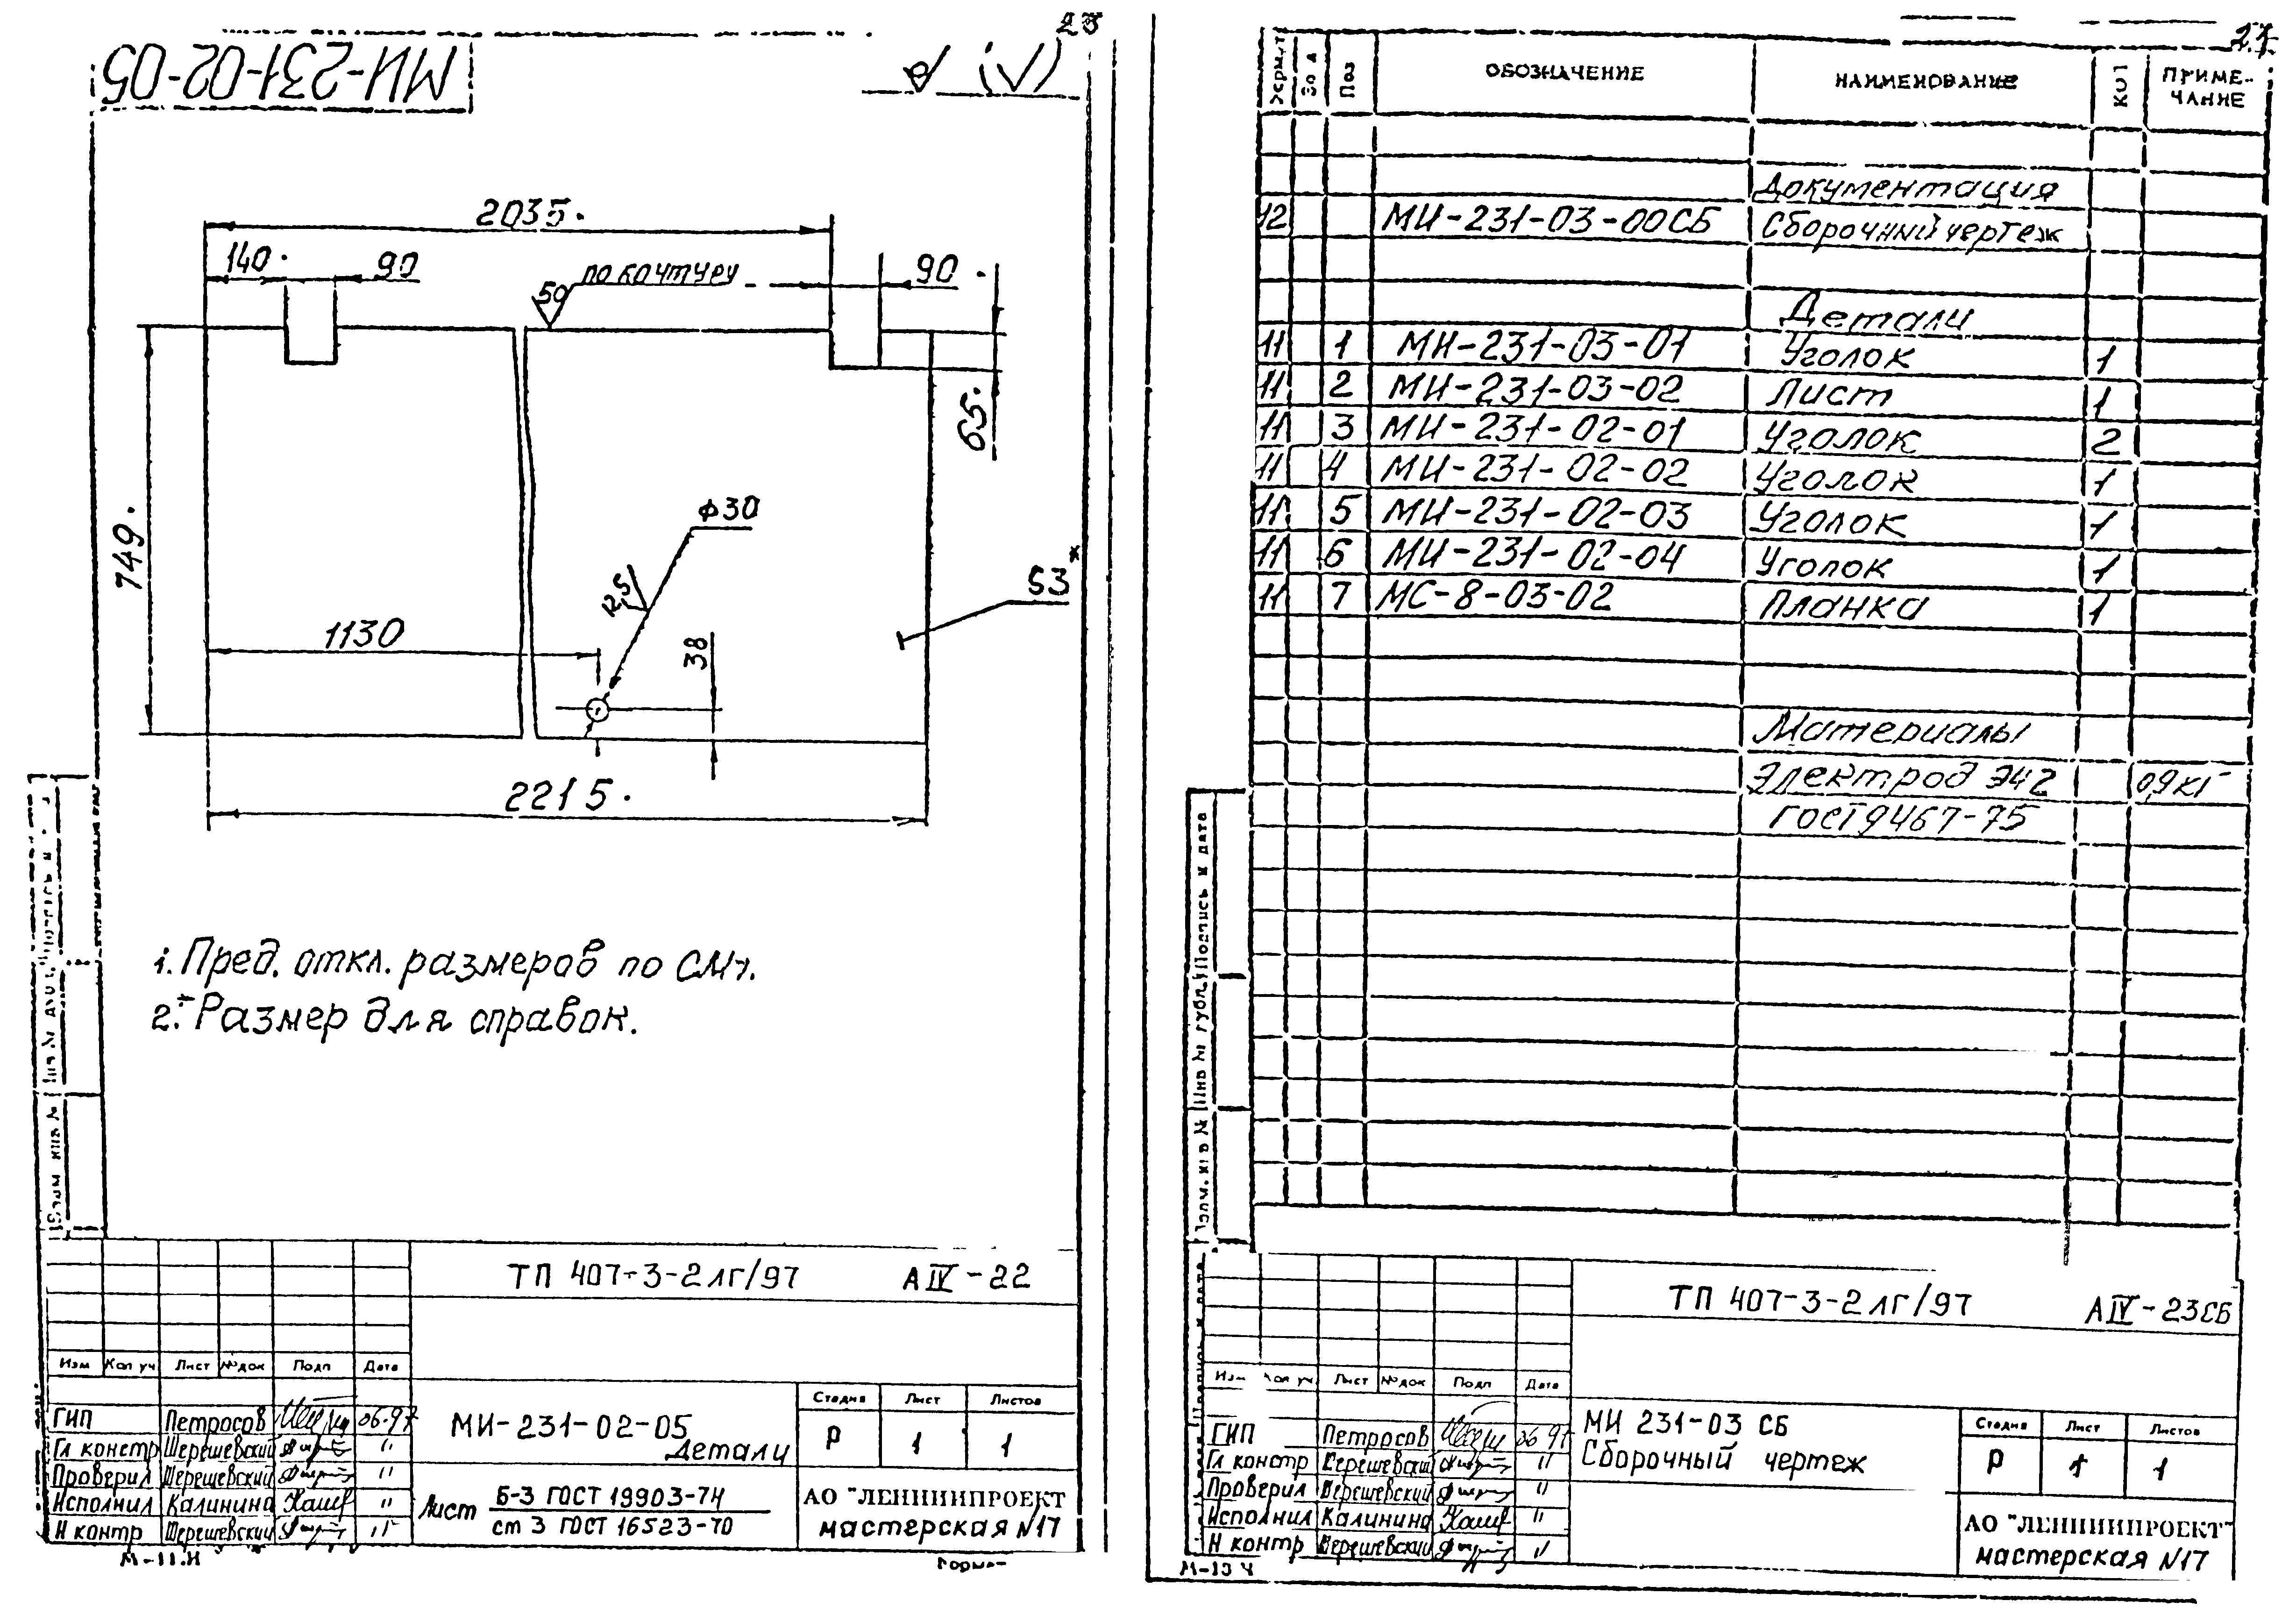 23
МИ-231-02-05
(√)
2035.
140.
90
50
по контуру
90
65.
749.
ф30
12,5
S3*
1130
38
2215.
1. Пред. откл. размеров по СМ7.
2.* Размер для справок.
ТП 407-3-2лг/97 АIV-22
Изм Кол уч Лист №док Подп Дата
ГИП Петросов 06.97
Гл констр Шерешевский "
Проверил Шерешевский "
Исполнил Калинина "
Н контр Шерешевский "
МИ-231-02-05
Детали
Стадия Лист Листов
Р 1 1
Лист Б-3 ГОСТ 19903-74
ст 3 ГОСТ 16523-70
АО "ЛЕННИИПРОЕКТ
мастерская N17
М-11.И
Форма
Поз ОБОЗНАЧЕНИЕ НАИМЕНОВАНИЕ КОЛ ПРИМЕ-
ЧАНИЕ
Документация
12 МИ-231-03-00СБ Сборочный чертеж
Детали
11 1 МИ-231-03-01 Уголок 1
11 2 МИ-231-03-02 Лист 1
11 3 МИ-231-02-01 Уголок 2
11 4 МИ-231-02-02 Уголок 1
11 5 МИ-231-02-03 Уголок 1
11 6 МИ-231-02-04 Уголок 1
11 7 МС-8-03-02 Планка 1
Материалы
Электрод Э42 0,9кг
ГОСТ9467-75
Подпись и дата
ТП 407-3-2лг/97 АIV-23СБ
Изм Кол уч Лист №док Подп Дата
ГИП Петросов 06 97
Гл констр Шерешевский "
Проверил Шерешевский "
Исполнил Калинина "
Н контр Шерешевский "
МИ 231-03 СБ
Сборочный чертеж
Стадия Лист Листов
Р 1 1
АО "ЛЕННИИПРОЕКТ"
мастерская N17